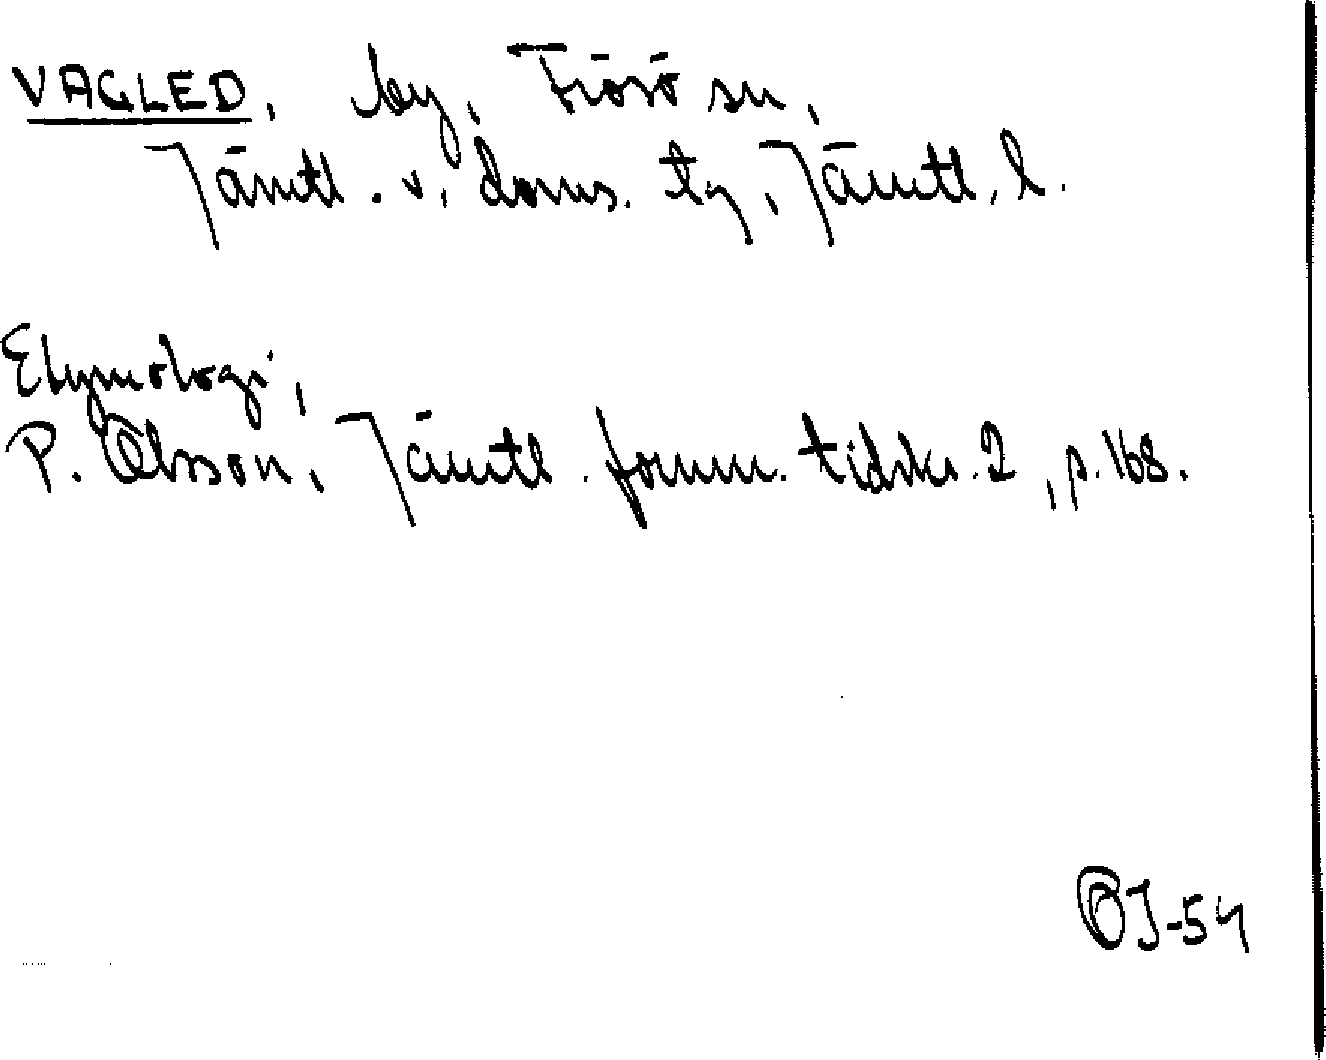 VAGLED, by, Frösö sn,
Jämtl. v. doms. tg, Jämtl. l.
Etymologi,
P. Olsson, Jämtl. fornm. tidskr. 2, p. 168.
OJ-54